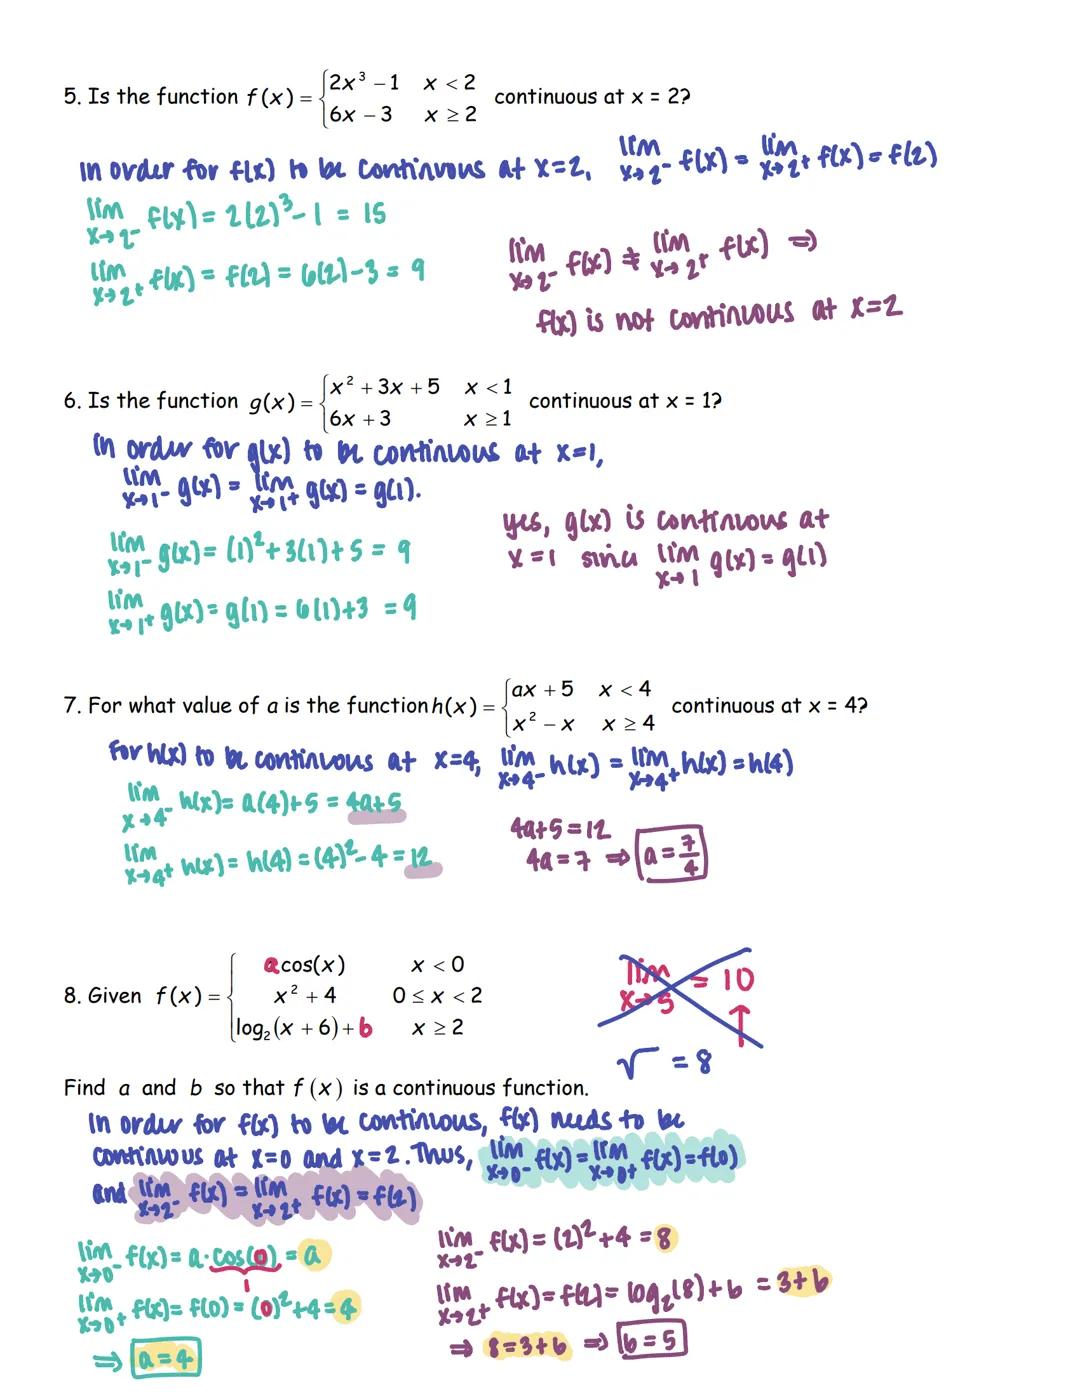 5. Is the function f(x) = { 2x³ − 1   x < 2
6x − 3   x ≥ 2   continuous at x = 2?
In order for f(x) to be continuous at x=2, lim x→2⁻ f(x) = lim x→2⁺ f(x) = f(2)
lim x→2⁻ f(x) = 2(2)³ − 1 = 15
lim x→2⁺ f(x) = f(2) = 6(2) − 3 = 9
lim x→2⁻ f(x) ≠ lim x→2⁺ f(x) ⇒
f(x) is not continuous at x=2
6. Is the function g(x) = { x² + 3x + 5   x < 1
6x + 3   x ≥ 1   continuous at x = 1?
In order for g(x) to be continuous at x=1,
lim x→1⁻ g(x) = lim x→1⁺ g(x) = g(1).
lim x→1⁻ g(x) = (1)² + 3(1) + 5 = 9
lim x→1⁺ g(x) = g(1) = 6(1)+3 = 9
yes, g(x) is continuous at
x=1 since lim x→1 g(x) = g(1)
7. For what value of a is the function h(x) = { ax + 5   x < 4
x² − x   x ≥ 4   continuous at x = 4?
For h(x) to be continuous at x=4, lim x→4⁻ h(x) = lim x→4⁺ h(x) = h(4)
lim x→4⁻ h(x) = a(4)+5 = 4a+5
lim x→4⁺ h(x) = h(4) = (4)² − 4 = 12
4a+5=12
4a=7 ⇒ a = 7/4
8. Given f(x) = { a cos(x)   x < 0
x² + 4   0 ≤ x < 2
log₂(x + 6) + b   x ≥ 2
lim x→5 = 10
↑
√ = 8
Find a and b so that f(x) is a continuous function.
In order for f(x) to be continous, f(x) needs to be
continuous at x=0 and x=2. Thus, lim x→0⁻ f(x) = lim x→0⁺ f(x) = f(0)
and lim x→2⁻ f(x) = lim x→2⁺ f(x) = f(2)
lim x→0⁻ f(x) = a·cos(0) = a
1
lim x→0⁺ f(x) = f(0) = (0)²+4 = 4
⇒ a=4
lim x→2⁻ f(x) = (2)²+4 = 8
lim x→2⁺ f(x) = f(2) = log₂(8)+b = 3+b
⇒ 8=3+b ⇒ b=5